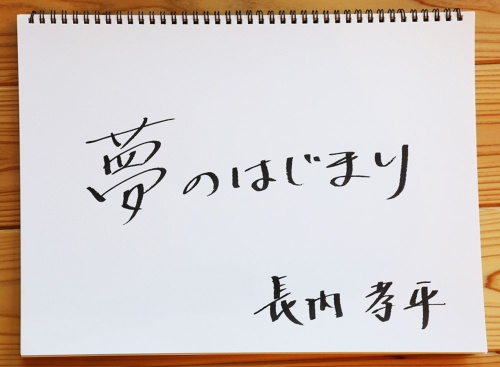 夢のはじまり
長内 孝平